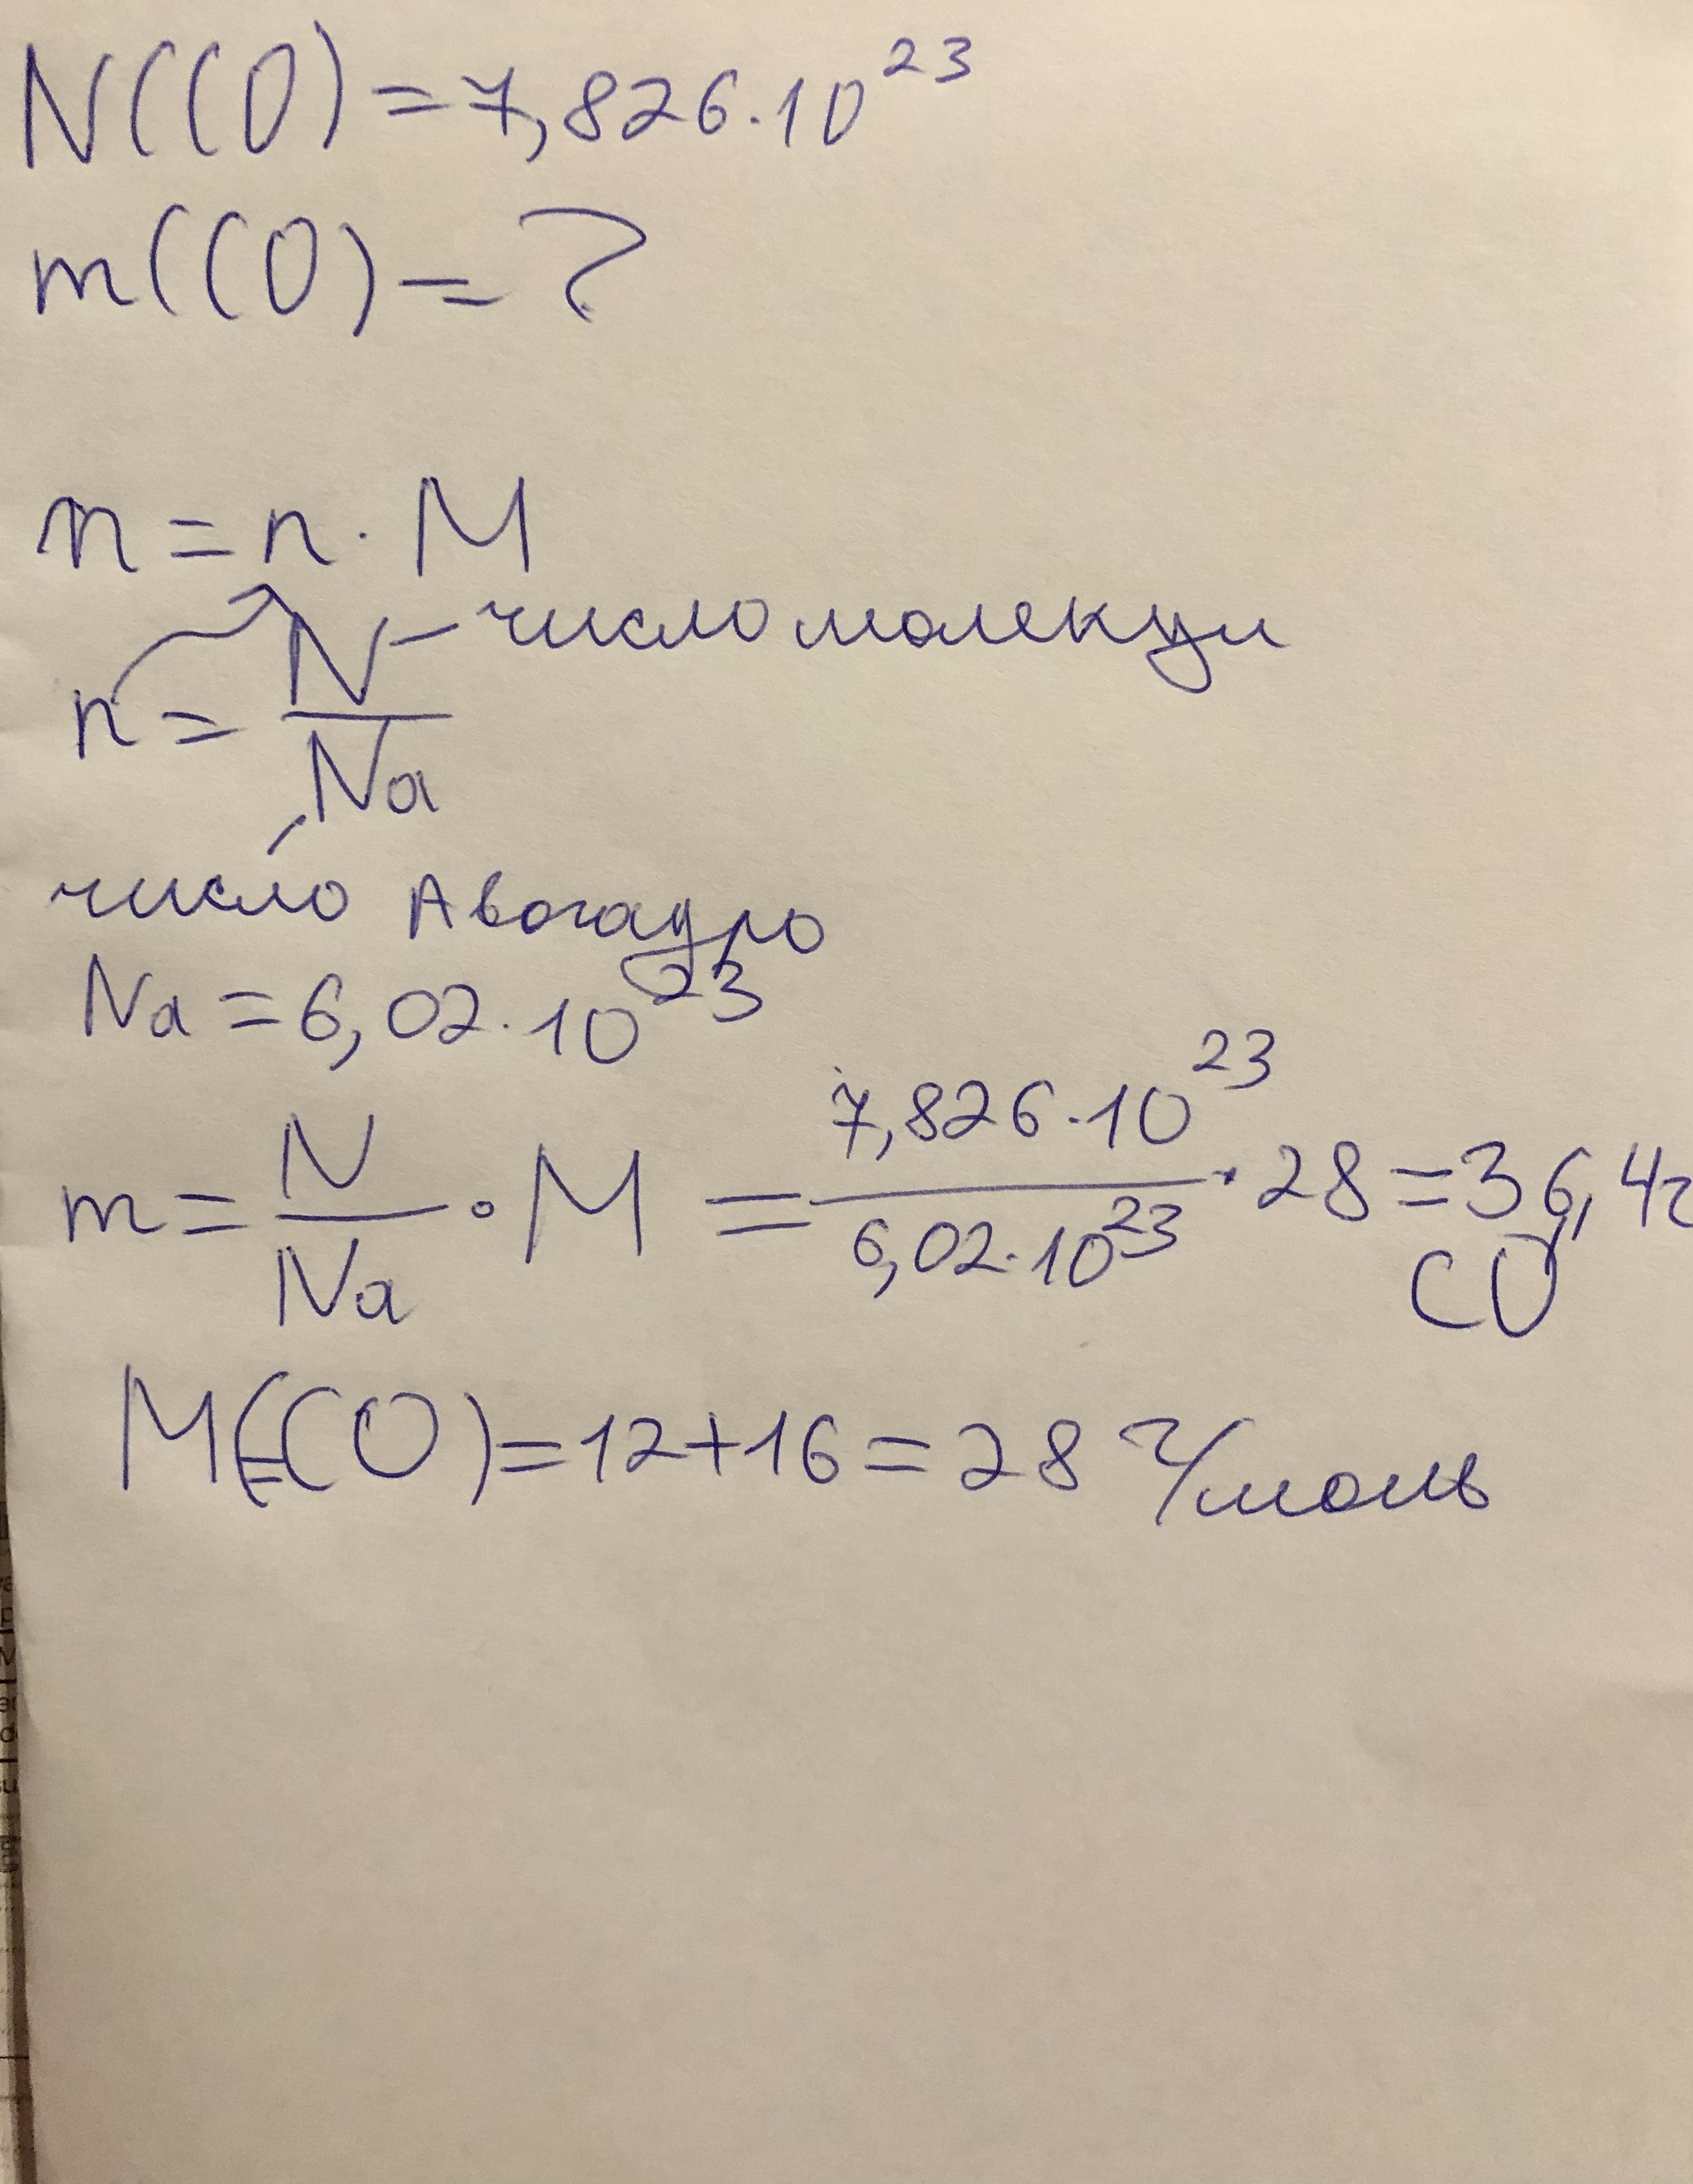 N(CO) = 7,826 · 10²³
m(CO) = ?
m = n · M
n = N/Na
N – число молекул
число Авогадро
Na = 6,02 · 10²³
m = N/Na · M = 7,826 · 10²³ / 6,02 · 10²³ · 28 = 36,4г
CO
M(CO) = 12 + 16 = 28 г/моль